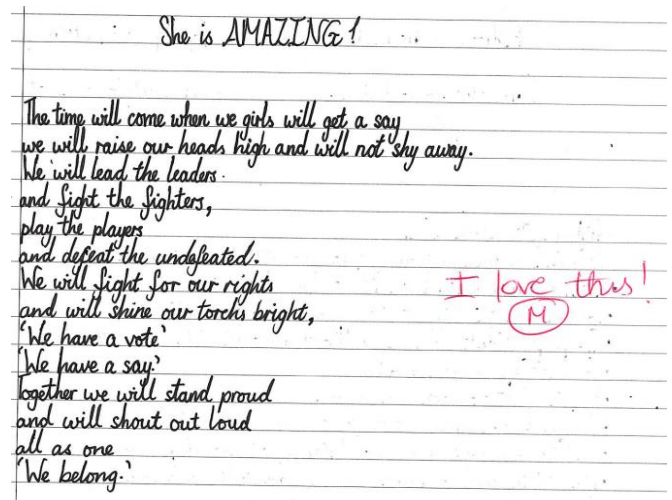 She is AMAZING!
The time will come when we girls will get a say
we will raise our heads high and will not shy away.
We will lead the leaders.
and fight the fighters,
play the players
and defeat the undefeated.
We will fight for our rights
and will shine our torchs bright,
'We have a vote'
'We have a say.'
Together we will stand proud
and will shout out loud
all as one
'We belong.'
I love this!
M